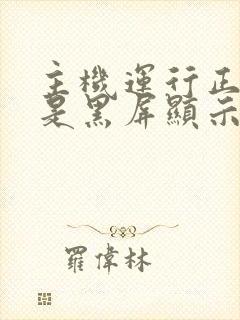 主機運行正
是黑屏顯示
羅偉林